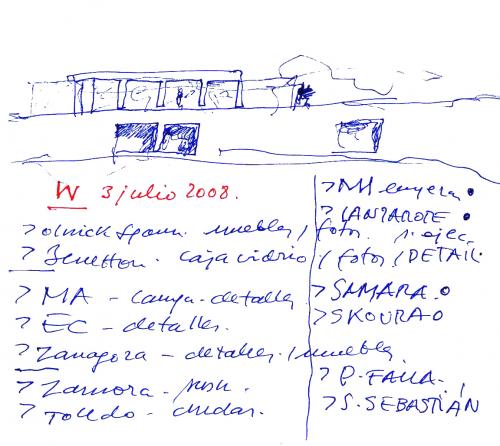 W 3 julio 2008.
>olnick Spanu. muebles / fotos. p. ejec.
>Benetton. caja vidrio / fotos / DETALL.
>MA - detalles
>EC - detalles.
>Zaragoza - detalles. / muebles.
>Zamora -
>Toledo -
>MH
>LANZAROTE
>SAMARA.
>SKOURA
>P. FALLA.
>S. SEBASTIÁN